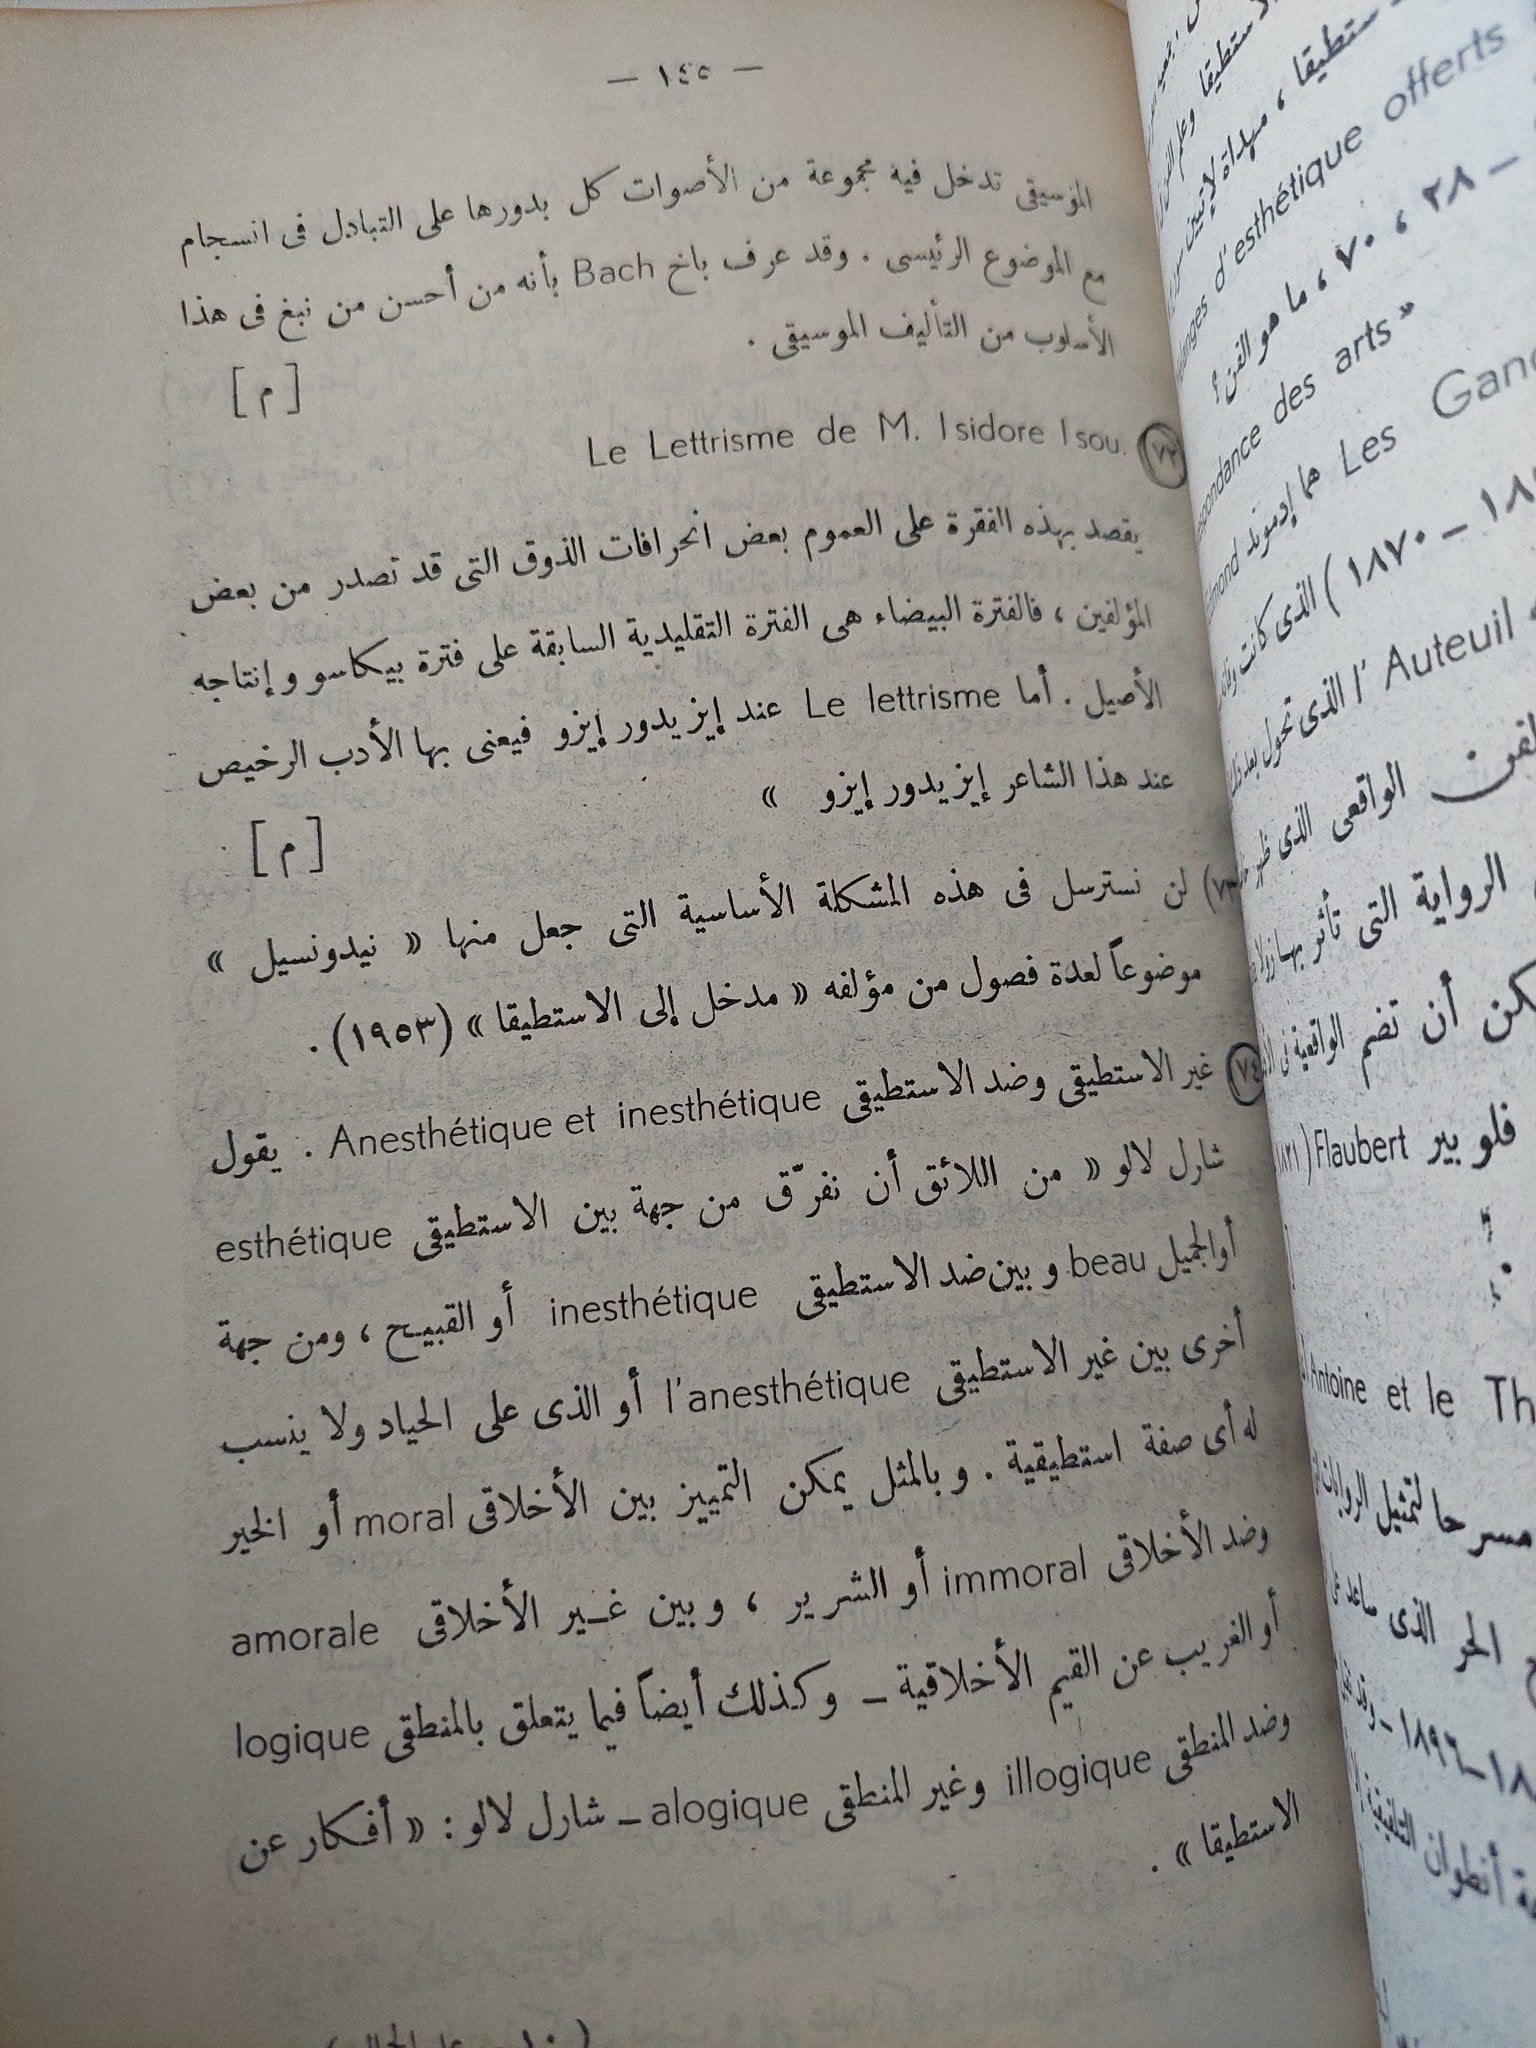 — ١٤٥ —
الموسيقى تدخل فيه مجموعة من الأصوات كل بدورها على التبادل فى انسجام
مع الموضوع الرئيسى . وقد عرف باخ Bach بأنه من أحسن من نبغ فى هذا
الأسلوب من التأليف الموسيقى .
[ م ]
Le Lettrisme de M. Isidore Isou.
يقصد بهذه الفقرة على العموم بعض انحرافات الذوق التى قد تصدر من بعض
المؤلفين ، فالفترة البيضاء هى الفترة التقليدية السابقة على فترة بيكاسو وإنتاجه
الأصيل . أما Le lettrisme عند إيزيدور إيزو فيعنى بها الأدب الرخيص
عند هذا الشاعر إيزيدور إيزو »
[ م ]
لن نسترسل فى هذه المشكلة الأساسية التى جعل منها « نيدونسيل »
موضوعاً لعدة فصول من مؤلفه « مدخل إلى الاستطيقا » (١٩٥٣) .
(٧٤) غير الاستطيقى وضد الاستطيقى Anesthétique et inesthétique . يقول
شارل لالو « من اللائق أن نفرّق من جهة بين الاستطيقى esthétique
أو الجميل beau وبين ضد الاستطيقى inesthétique أو القبيح ، ومن جهة
أخرى بين غير الاستطيقى l'anesthétique أو الذى على الحياد ولا ينسب
له أى صفة استطيقية . وبالمثل يمكن التمييز بين الأخلاقى moral أو الخير
وضد الأخلاقى immoral أو الشرير ، وبين غير الأخلاقى amorale
أو الغريب عن القيم الأخلاقية – وكذلك أيضاً فيما يتعلق بالمنطقى logique
وضد المنطقى illogique وغير المنطقى alogique – شارل لالو : « أفكار عن
الاستطيقا » .
d'esthétique offerts
٢٨ ، ٧٠ ، ما هو الفن ؟
des arts »
هما إدموند Les
١٨٧٠) الذى كانت
l'Auteuil الذى تحول بعد ذلك
الواقعى الذى ظهر
الرواية التى تأثر بها زولا
أن تضم الواقعية فى
فلوبير Flaubert (١٨٢١
Antoine et le
مسرحا لتمثيل الروايات
الحر الذى ساعد